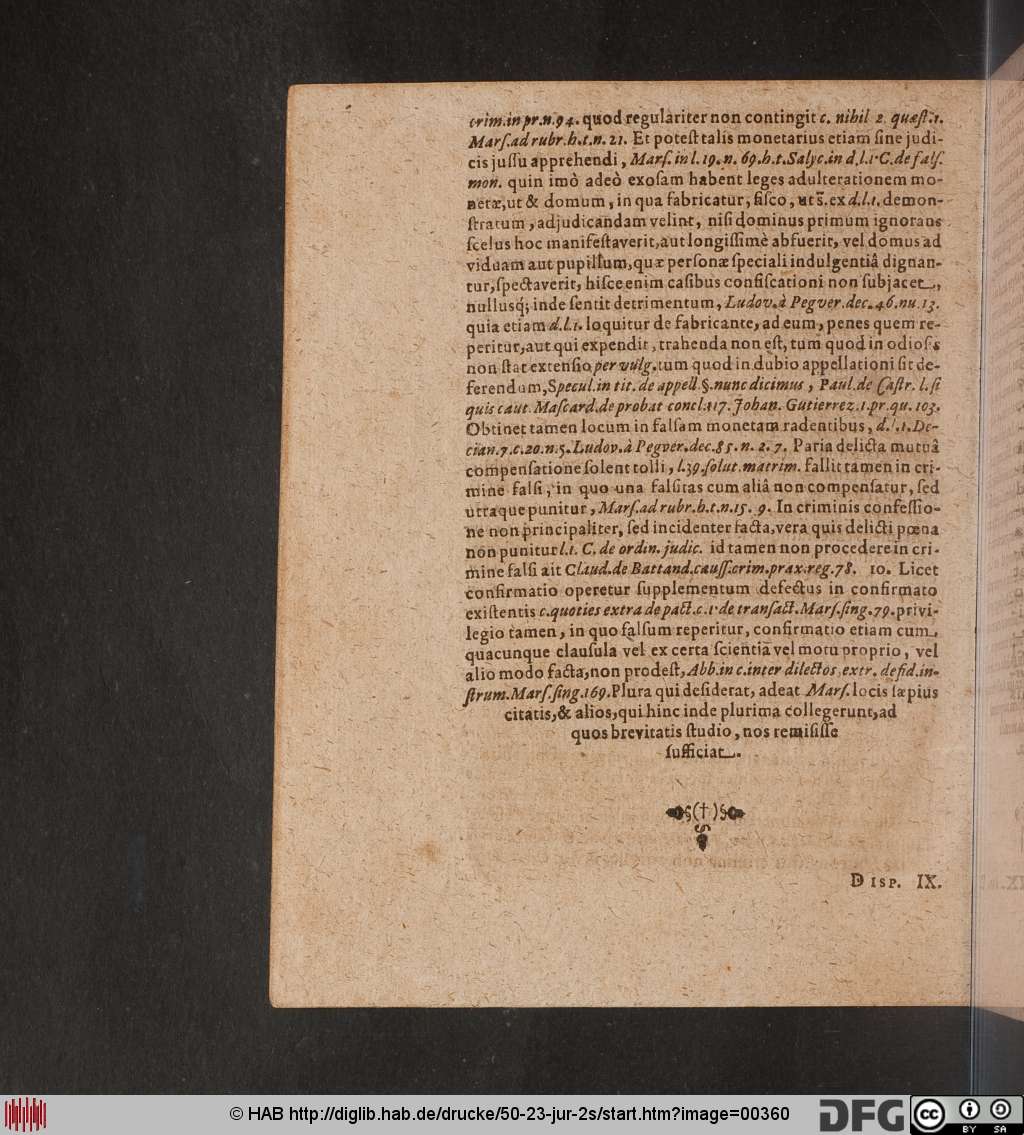 crim.in pr.n.94. quod regulariter non contingit c. nihil 2. quæst.1.
Marſ.ad rubr.h.t.n. 21. Et poteſt talis monetarius etiam ſine judi-
cis juſſu apprehendi, Marſ. in l. 19. n. 69.h.t.Salyc.in d.l.1. C.de falſ.
mon. quin imò adeò exoſam habent leges adulterationem mo-
netæ, ut & domum, in qua fabricatur, fiſco, ut s̃. ex d.l.1. demon-
ſtratum, adjudicandam velint, niſi dominus primum ignorans
ſcelus hoc manifeſtaverit, aut longiſſimè abfuerit, vel domus ad
viduam aut pupillum, quæ perſonæ ſpeciali indulgentiâ dignan-
tur, ſpectaverit, hiſce enim caſibus confiſcationi non ſubjacet,
nullusq́; inde ſentit detrimentum, Ludov. à Pegver. dec. 46. nu. 13.
quia etiam d.l.1. loquitur de fabricante, ad eum, penes quem re-
peritur, aut qui expendit, trahenda non eſt, tum quod in odioſis
non ſtat extenſio per vulg. tum quod in dubio appellationi ſit de-
ferendum, Specul. in tit. de appell. §. nunc dicimus, Paul. de Caſtr. l. ſi
quis caut. Maſcard. de probat concl. 117. Johan. Gutierrez. 1. pr. qu. 103.
Obtinet tamen locum in falſam monetam radentibus, d.l.1. De-
cian. 7. c. 20. n. 5. Ludov. à Pegver. dec. 85. n. 2. 7. Paria delicta mutuâ
compenſatione ſolent tolli, l. 39. ſolut. matrim. fallit tamen in cri-
mine falſi, in quo una falſitas cum aliâ non compenſatur, ſed
utraque punitur, Marſ. ad rubr. h.t. n. 15. 9. In criminis confeſſio-
ne non principaliter, ſed incidenter facta, vera quis delicti pœna
non punitur l. 1. C. de ordin. judic. id tamen non procedere in cri-
mine falſi ait Claud. de Battand. cauſſ. crim. prax. reg. 78. 10. Licet
confirmatio operetur ſupplementum defectus in confirmato
exiſtentis c. quoties extra de pact. c. 1. de tranſact. Marſ. ſing. 79. privi-
legio tamen, in quo falſum reperitur, confirmatio etiam cum
quacunque clauſula vel ex certa ſcientia vel motu proprio, vel
alio modo facta, non prodeſt, Abb. in c. inter dilectos extr. de fid. in-
ſtrum. Marſ. ſing. 169. Plura qui deſiderat, adeat Marſ. locis ſæpius
citatis, & alios, qui hinc inde plurima collegerunt, ad
quos brevitatis ſtudio, nos remiſiſſe
ſufficiat.
Disp. IX.
© HAB http://diglib.hab.de/drucke/50-23-jur-2s/start.htm?image=00360
DFG
cc BY SA